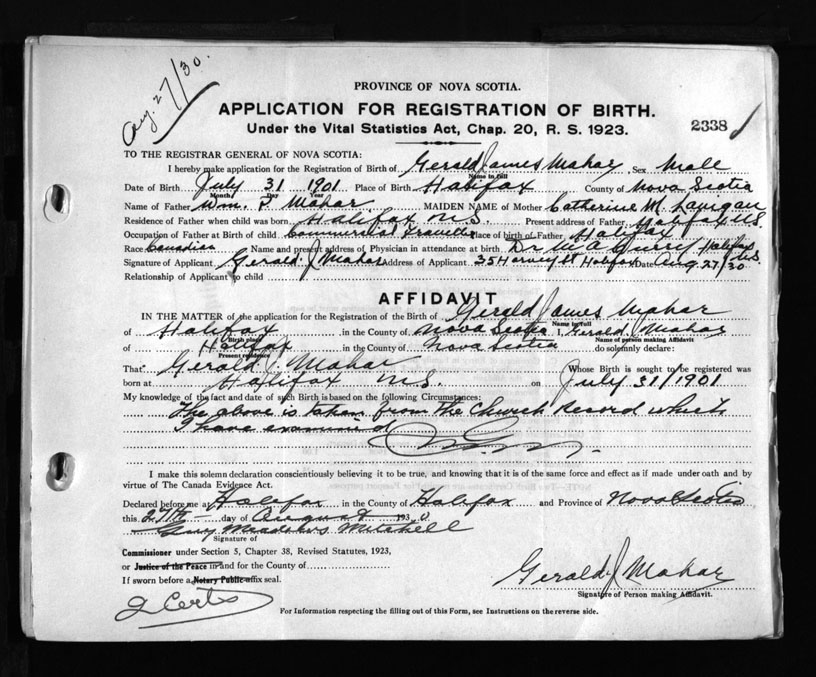 Aug. 27/30.
PROVINCE OF NOVA SCOTIA.
APPLICATION FOR REGISTRATION OF BIRTH.
Under the Vital Statistics Act, Chap. 20, R. S. 1923.
2338
TO THE REGISTRAR GENERAL OF NOVA SCOTIA:
I hereby make application for the Registration of Birth of Gerald James Mahar Sex Male
Name in full
Date of Birth July 31 1901 Place of Birth Halifax County of Nova Scotia
Month Day Year
Name of Father Wm. P. Mahar MAIDEN NAME of Mother Catherine M. Lavigan
Residence of Father when child was born Halifax N.S. Present address of Father Halifax N.S.
Occupation of Father at Birth of child Commercial Traveller Place of birth of Father Halifax
Race Canadian Name and present address of Physician in attendance at birth Dr Halifax N.S.
Signature of Applicant Gerald J Mahar Address of Applicant 35 Harvey St Halifax Date Aug 27/30
Relationship of Applicant to child
AFFIDAVIT
IN THE MATTER of the application for the Registration of the Birth of Gerald James Mahar
Name in full
of Halifax in the County of Nova Scotia I, Gerald J Mahar
Birth place Name of person making Affidavit
of Halifax in the County of Nova Scotia do solemnly declare:
Present residence
That Gerald J. Mahar Whose Birth is sought to be registered was
born at Halifax N.S. on July 31/1901
My knowledge of the fact and date of such Birth is based on the following Circumstances:
The above is taken from the Church Record which
I have examined
I make this solemn declaration conscientiously believing it to be true, and knowing that it is of the same force and effect as if made under oath and by
virtue of The Canada Evidence Act.
Declared before me at Halifax in the County of Halifax and Province of Nova Scotia
this 27th day of August 1930
Guy Meadows Mitchell
Signature of
Commissioner under Section 5, Chapter 38, Revised Statutes, 1923,
or Justice of the Peace in and for the County of
If sworn before a Notary Public affix seal.
Gerald J Mahar
Signature of Person making Affidavit.
2 Certs
For Information respecting the filling out of this Form, see Instructions on the reverse side.